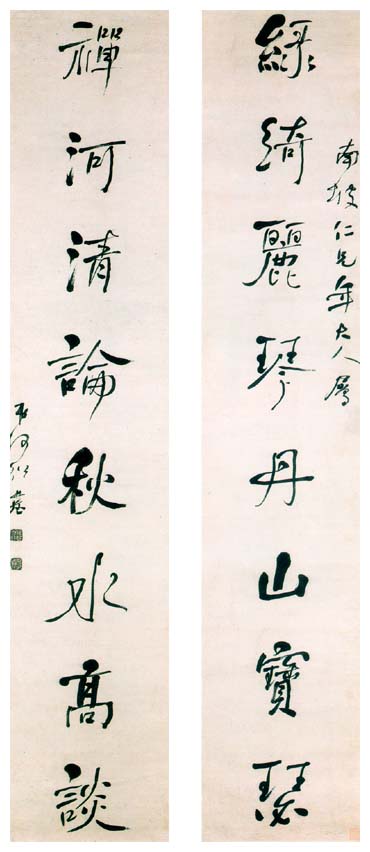 南坡仁兄年大人屬
綠綺麗琴丹山寶瑟
禪河清論秋水高談
弟何紹基